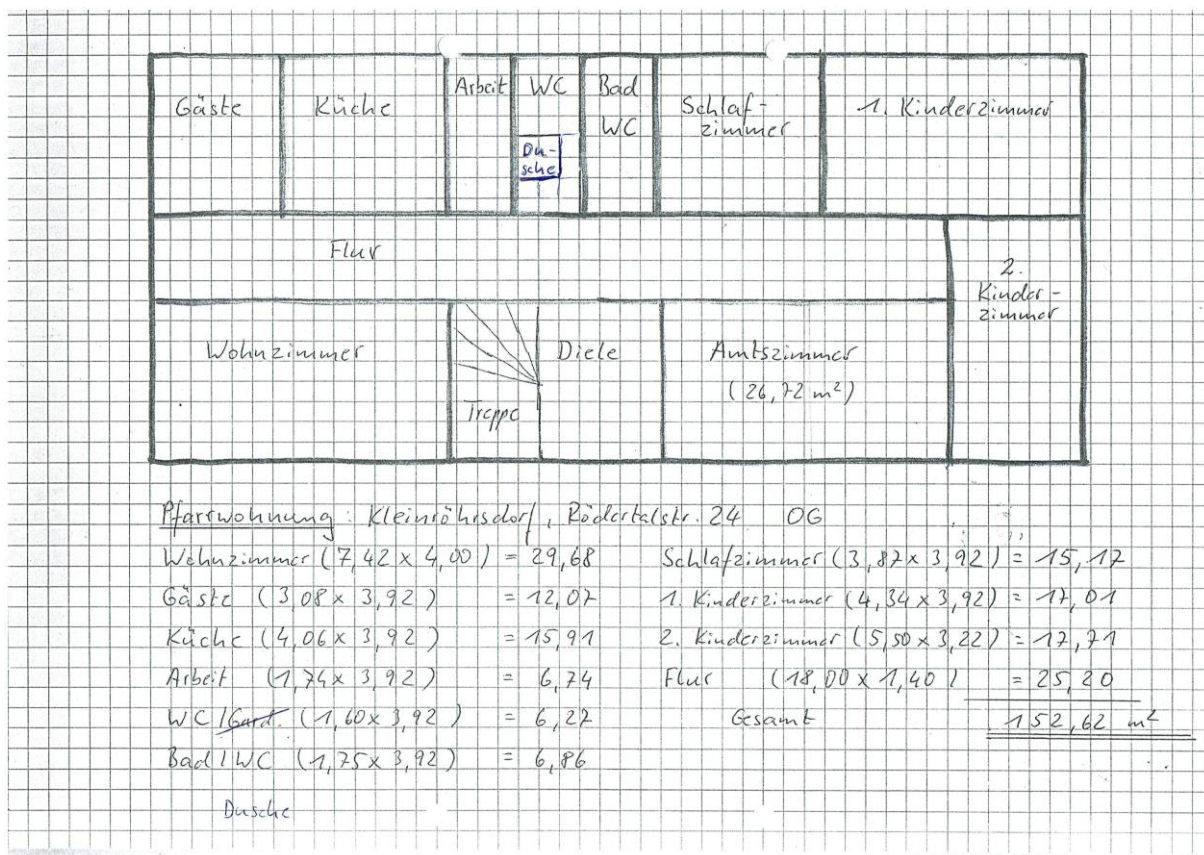 Gäste
Küche
Arbeit
WC
Du-
sche
Bad
WC
Schlaf-
zimmer
1. Kinderzimmer
Flur
2.
Kinder-
zimmer
Wohnzimmer
Treppe
Diele
Amtszimmer
(26,72 m²)
Pfarrwohnung: Kleinröhrsdorf, Rödertalstr. 24 OG
Wohnzimmer (7,42 x 4,00) = 29,68
Gäste (3,08 x 3,92) = 12,07
Küche (4,06 x 3,92) = 15,91
Arbeit (1,74 x 3,92) = 6,74
WC/Gard. (1,60 x 3,92) = 6,27
Bad/WC (1,75 x 3,92) = 6,86
Dusche
Schlafzimmer (3,87 x 3,92) = 15,17
1. Kinderzimmer (4,34 x 3,92) = 17,01
2. Kinderzimmer (5,50 x 3,22) = 17,71
Flur (18,00 x 1,40) = 25,20
Gesamt 152,62 m²